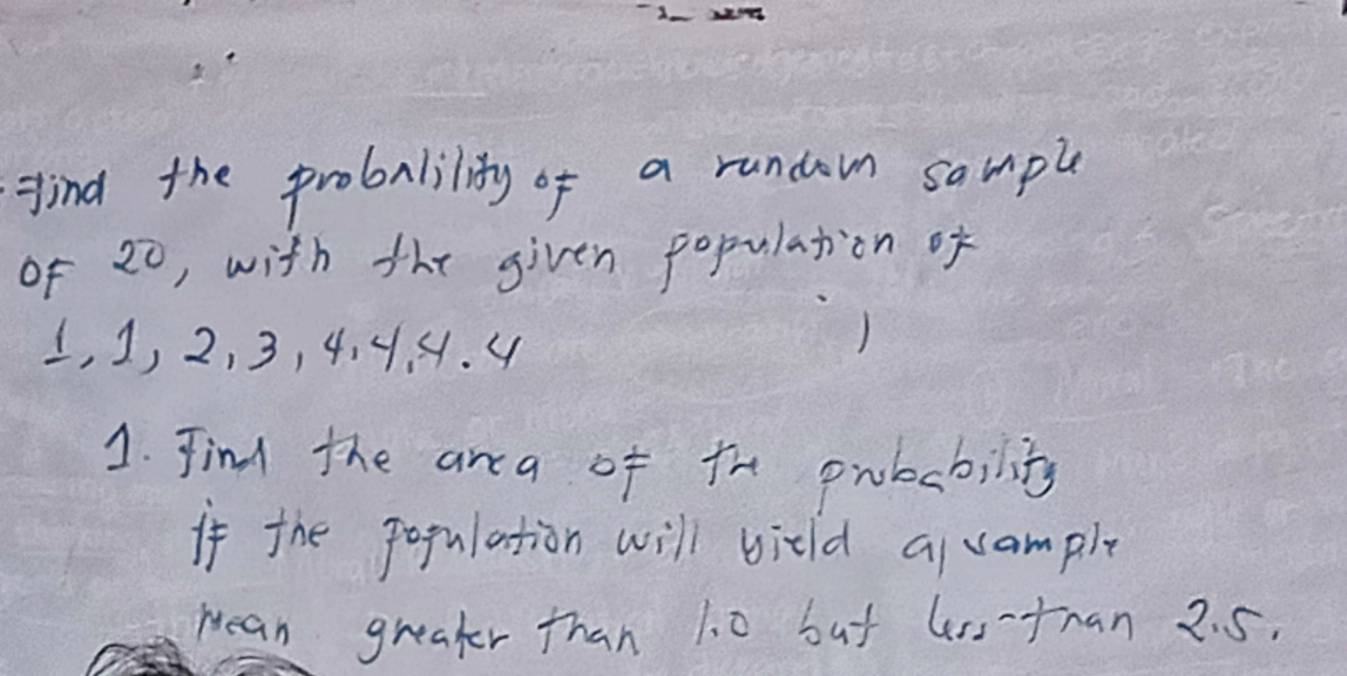 Find the probalility of a random sample
of 20, with the given population of
1, 1, 2, 3, 4, 4, 4. 4
1. Find the area of the probability
if the population will yield a sample
mean greater than 1.0 but less than 2.5.